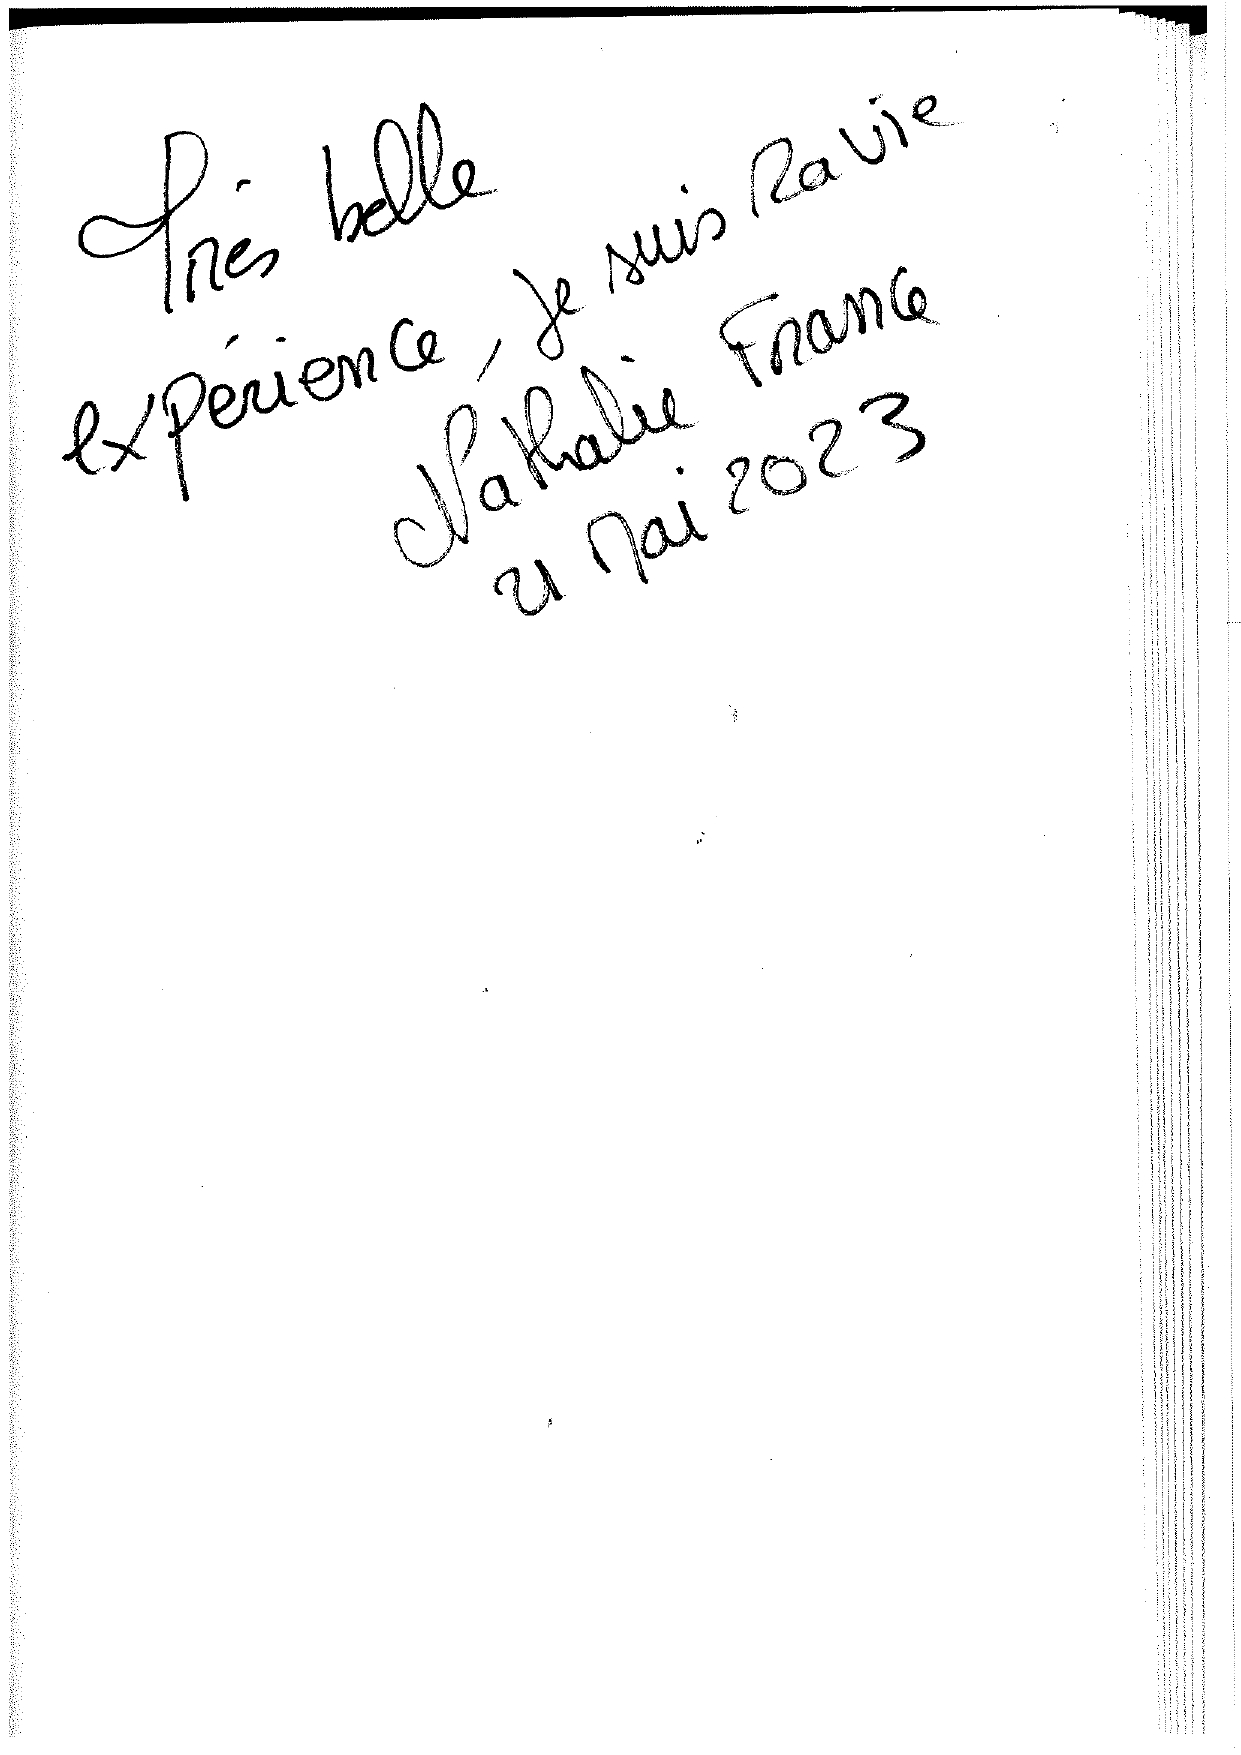 Très belle
expérience, je suis Ravie
Nathalie France
21 Mai 2023